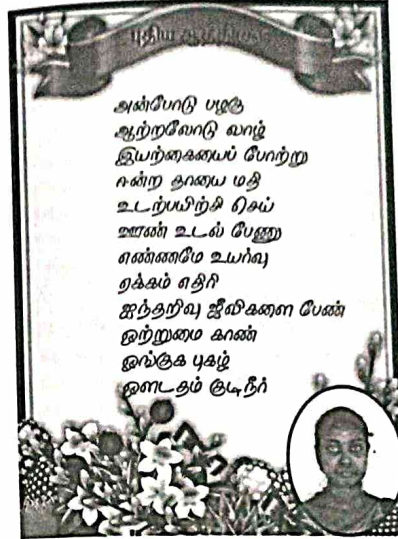 புதிய ஆத்திசூடி
அன்போடு பழகு
ஆற்றலோடு வாழ்
இயற்கையைப் போற்று
ஈன்ற தாயை மதி
உடற்பயிற்சி செய்
ஊண் உடல் பேணு
எண்ணமே உயர்வு
ஏக்கம் எதிரி
ஐந்தறிவு ஜீவிகளை பேண்
ஒற்றுமை காண்
ஓங்குக புகழ்
ஔடதம் குடிநீர்